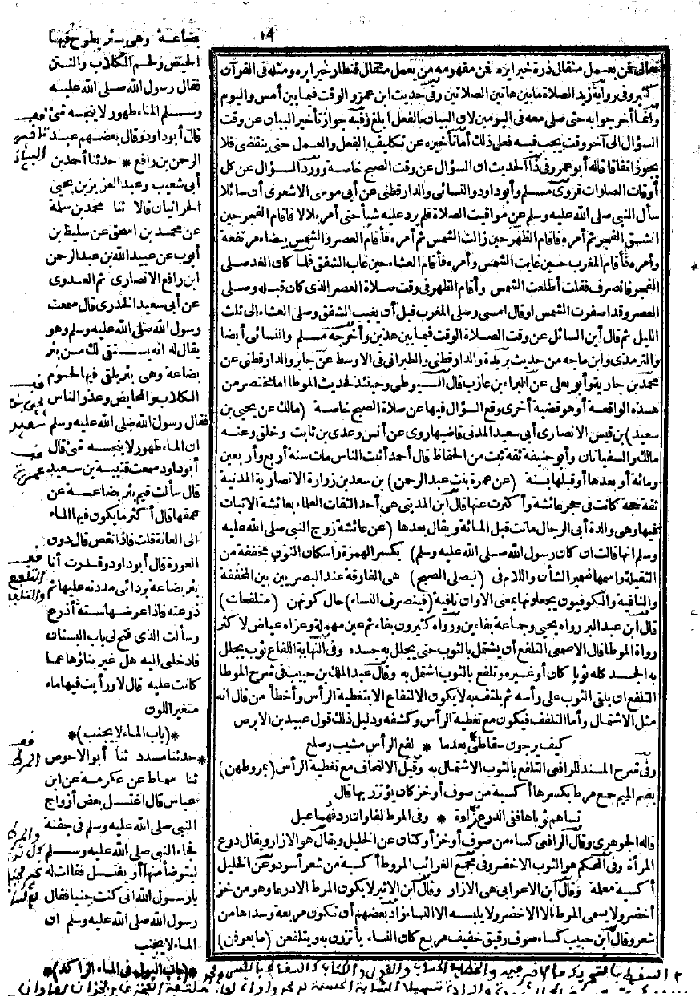 ١٤
تعالى فمن يعمل مثقال ذرة خيرا يره فمن مفهومه من يعمل مثقال قنطار خيرا يره ومثله فى القرآن
كثير وفى رواية زيد الصلاة ما بين هاتين الصلاتين وفى حديث ابن عمرو الوقت فيما بين أمس واليوم
وانما أخر جوابه حتى صلى معه فى اليومين لان البيان بالفعل أبلغ وفيه جواز تأخير البيان عن وقت
السؤال الى آخر وقت يجب فيه فعل ذلك أما تأخيره عن تكليف الفعل والعمل حتى ينقضى فلا
يجوز اتفاقا قاله أبو عمر وفى ذا الحديث ان السؤال عن وقت الصبح خاصة وورد السؤال عن كل
أوقات الصلوات فروى مسلم وأبو داود والنسائى والدارقطنى عن أبى موسى الاشعرى أن سائلا
سأل النبى صلى الله عليه وسلم عن مواقيت الصلاة فلم يرد عليه شيأ حتى أمر بلالا فاقام الفجر حين
انشق الفجر ثم أمره فاقام الظهر حين زالت الشمس ثم أمره فأقام العصر والشمس بيضاء مرتفعة
وأمره فأقام المغرب حين غابت الشمس وأمره فأقام العشاء حين غاب الشفق فلما كان الغد صلى
الفجر فانصرف فقلت أطلعت الشمس وأقام الظهر فى وقت صلاة العصر الذى كان قبله وصلى
العصر وقد اصفرت الشمس أو قال امسى وصلى المغرب قبل أن يغيب الشفق وصلى العشاء الى ثلث
الليل ثم قال أين السائل عن وقت الصلاة الوقت فيما بين هذين وأخرجه مسلم والنسائى أيضا
والترمذى وابن ماجه من حديث بريدة والدارقطنى والطبرانى فى الاوسط عن جابر والدارقطنى عن
محمد بن جارية وأبو يعلى عن البراء بن عازب قال السيوطى وحينئذ لحديث الموطا اما مختصر من
هذه الواقعة أو هو قضية أخرى وقع السؤال فيها عن صلاة الصبح خاصة (مالك عن يحيى بن
سعيد) بن قيس الانصارى أبى سعيد المدنى قاضيها روى عن أنس وعدى بن ثابت وخلق وعنه
مالك والسفيانان وأبو حنيفة ثقة ثبت من الحفاظ قال أحمد أثبت الناس مات سنة أربع وأربعين
ومائة أو بعدها أو قبلها بسنة (عن عمرة بنت عبد الرحمن) بن سعد بن زرارة الانصارية المدنية
ثقة حجة كانت فى حجر عائشة وأكثرت عنها قال ابن المدينى هى أحد الثقات العلماء بعائشة الاثبات
فيها وهى والدة أبى الرجال ماتت قبل المائة ويقال بعدها (عن عائشة زوج النبى صلى الله عليه
وسلم انها قالت ان كان رسول الله صلى الله عليه وسلم) بكسر الهمزة واسكان النون مخففة من
الثقيلة واسمها ضمير الشأن واللام فى (ليصلى الصبح) هى الفارقة عند البصريين بين المخففة
والنافية والكوفيون يجعلونها بمعنى الا وان نافية (فينصرف النساء) حال كونهن (متلفعات)
قال ابن عبد البر رواه يحيى وجماعة بفاءين ورواه كثيرون بفاء ثم عين مهملة وعزاه عياض لاكثر
رواة الموطا قال الاصمعى التلفع أن يشتمل بالثوب حتى يجلل به جسده وفى النهاية اللفاع ثوب يجلل
به الجسد كله ثوبا كان أو غيره وتلفع بالثوب اشتمل به وقال عبد الملك بن حبيب فى شرح الموطا
التلفع ان يلقى الثوب على رأسه ثم يلتف به لا يكون الالتفاع الا بتغطية الرأس وأخطأ من قال انه
مثل الاشتمال وأما التلفف فيكون مع تغطية الرأس وكشفه ودليل ذلك قول عبيد بن الابرص
كيف يرجون سقاطى بعدما * لفع الرأس مشيب وصلع
وفى شرح المسند للرافعى التلفع بالثوب الاشتمال به وقيل الالتحاف مع تغطية الرأس (بمروطهن)
بضم الميم جمع مرط بكسرها أكسية من صوف أو خز كان يؤتزر بها قال
تساهم ثوباها ففى الدرع رأدة * وفى المرط لفاوان ردفهما عبل
قاله الجوهرى وقال الرافعى كساء من صوف أو خز أو كتان عن الخليل ويقال هو الازار ويقال درع
المرأة وفى المحكم هو الثوب الاخضر وفى مجمع الغرائب المروط أكسية من شعر أسود وعن الخليل
أكسية معلمة وقال ابن الاعرابى هى الازار وقال ابن الاثير لا يكون المرط الا درعا وهو من خز
أخضر ولا يسمى المرط الا الاخضر ولا يلبسه الا النساء زاد بعضهم أن تكون مربعة وسداها من
شعر وقال ابن حبيب كساء صوف رقيق خفيف مربع كان النساء يأتزرن به ويتلفعن (ما يعرفن)
بضاعة وهى بئر يطرح فيها
الحيض ولحم الكلاب والنتن
فقال رسول الله صلى الله عليه
وسلم الماء طهور لا ينجسه شئ
قال أبو داود وقال بعضهم عبد
الرحمن بن رافع * حدثنا أحمد بن
أبى شعيب وعبد العزيز بن يحيى
الحرانيان قالا ثنا محمد بن سلمة
عن محمد بن اسحق عن سليط بن
أيوب عن عبيد الله بن عبد الرحمن
ابن رافع الانصارى ثم العدوى
عن أبى سعيد الخدرى قال سمعت
رسول الله صلى الله عليه وسلم وهو
يقال له انه يستقى لك من بئر
بضاعة وهى بئر يلقى فيها لحوم
الكلاب والمحايض وعذر الناس
فقال رسول الله صلى الله عليه وسلم
ان الماء طهور لا ينجسه شئ قال
أبو داود سمعت قتيبة بن سعيد
قال سألت قيم بئر بضاعة عن
عمقها قال أكثر ما يكون فيها الماء
الى العانة قلت فاذا نقص قال دون
العورة قال أبو داود وقدرت أنا
بئر بضاعة بردائى مددته عليها ثم
ذرعته فاذا عرضها ستة أذرع
وسألت الذى فتح لى باب البستان
فادخلنى اليه هل غير بناؤها عما
كانت عليه قال لا ورأيت فيها ماء
متغير اللون
* (باب الماء لا يجنب) *
* حدثنا مسدد ثنا أبو الاحوص
ثنا سماك عن عكرمة عن ابن
عباس قال اغتسل بعض أزواج
النبى صلى الله عليه وسلم فى جفنة
فجاء النبى صلى الله عليه وسلم
ليتوضأ منها أو يغتسل فقالت له
يارسول الله انى كنت جنبا فقال
رسول الله صلى الله عليه وسلم ان
الماء لا يجنب
* (باب البول فى الماء الراكد) *